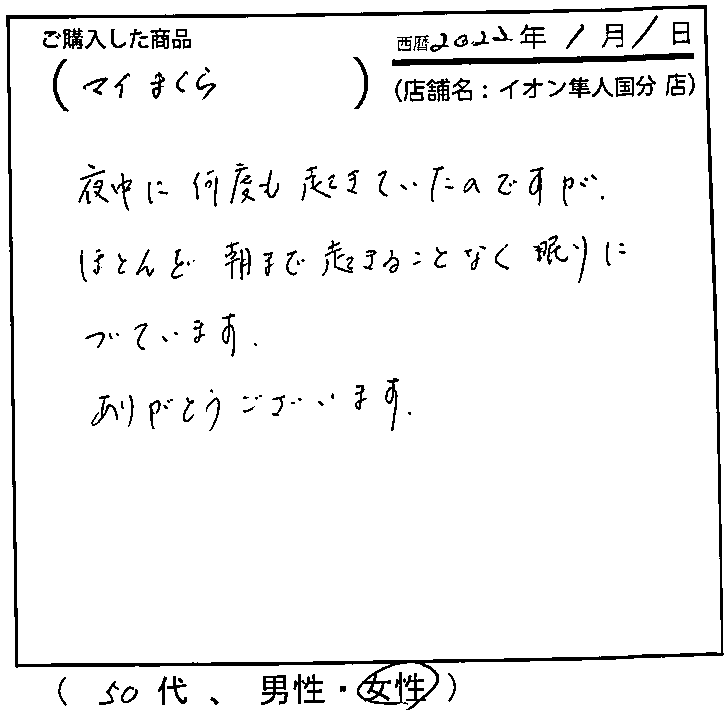 ご購入した商品
西暦2022年1月1日
(マイまくら)
(店舗名：イオン隼人国分店)
夜中に何度も起きていたのですが、
ほとんど朝まで起きることなく眠りに
づています.
ありがとうございます.
(50代、男性・女性)